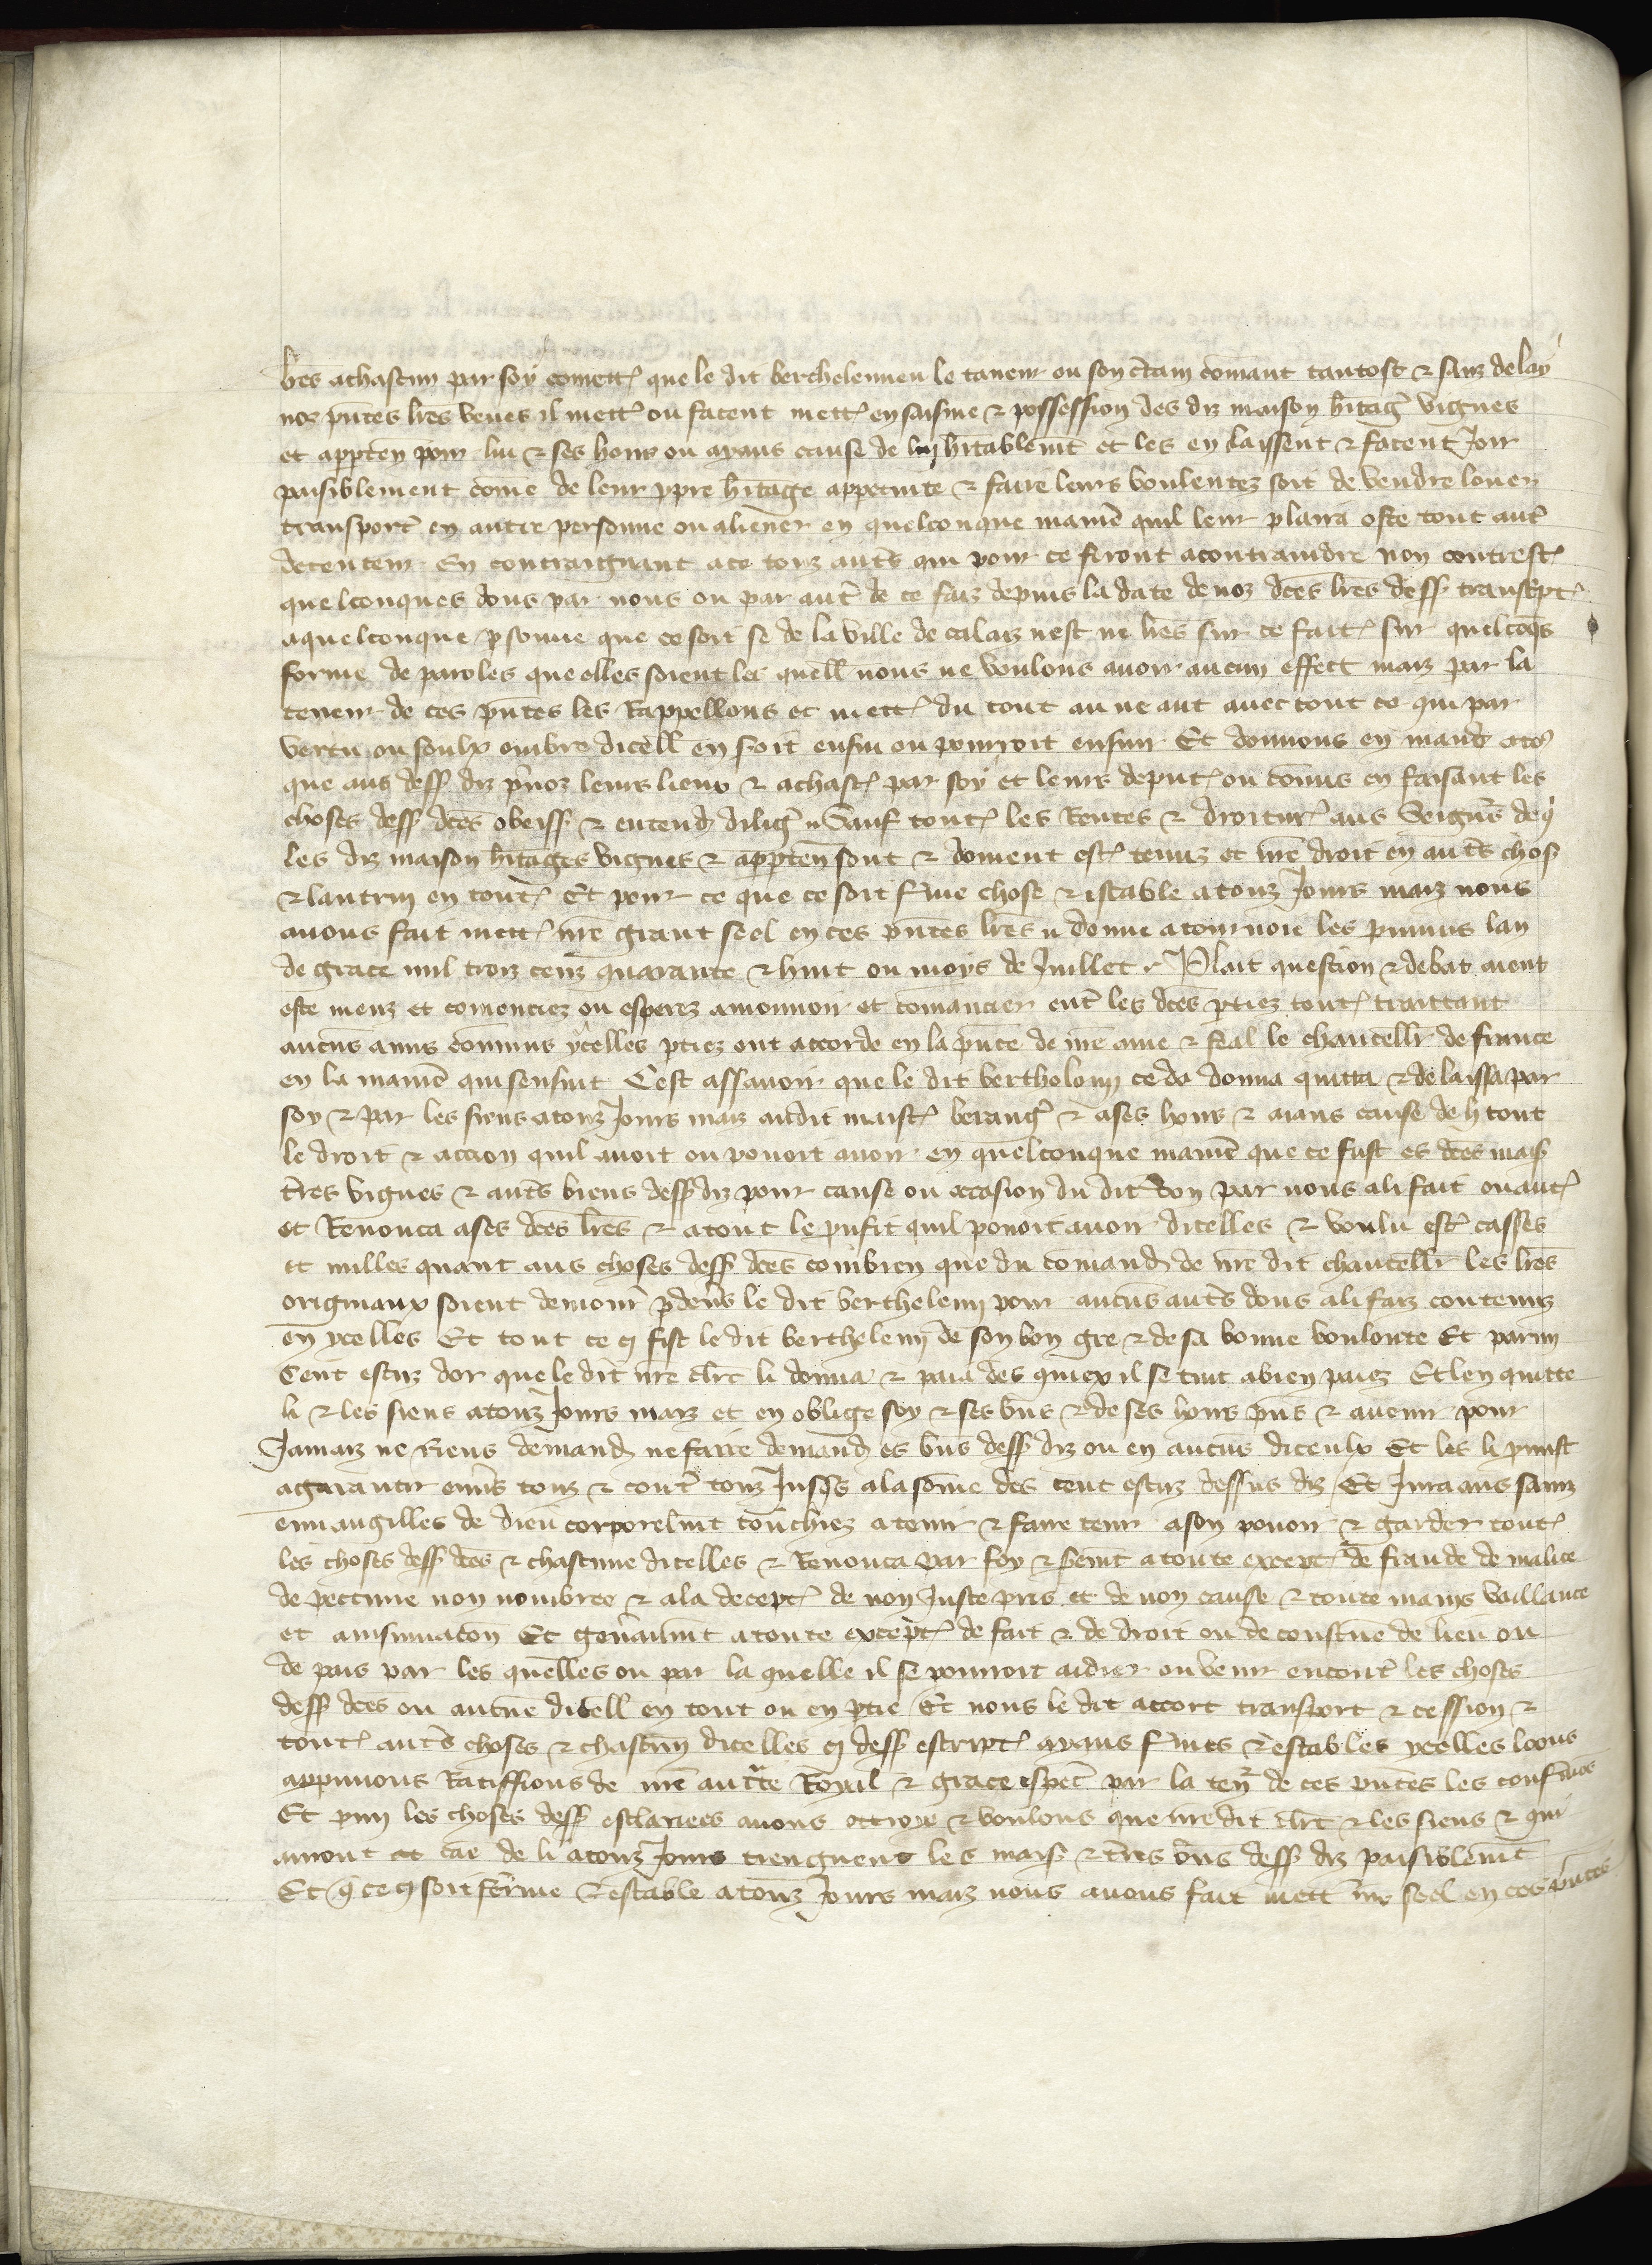 bres a chascun par soy comettre que le dit berthelemieu le taneur ou son certain comant tantost & sanz delay
noz pntes lres veues il mettre ou facent mettre en saisine & possession des diz maison heritage vignes
et apparten pour lui & ses hoirs ou ayans cause de luy heritablemt et les en laissent & facent Joir
paisiblement come de leur ppre heritage appertinte & faire leurs voulentez soit de vendre louer
transport en autre personne ou aliener en quelconque manie quil leur plaira oste tout autre
detenteur En contraignant a ce touz auts qui pour ce feront acontraindre non contrest
quelconques dons par nous ou par autre de ce faiz depuis la date de noz dces lres dess transcpt
a quelconque psonne que ce soit se de la ville de calaiz nest ne lres sur ce fait sur quelcoqs
forme de paroles que elles soient les quell nous ne voulons avoir aucun effect maiz par la
teneur de ces pntes les Rappellons et mett du tout au ne ant avec tout ce qui par
vertu ou soulx ombre dicell en soit ensui ou pourroit ensuir Et donnons en mand a tos
que aus dess diz pnoz leurs lieux & a chast par soy et leurs deput ou comis en faisant les
choses dess dces obeiss & entend dilig Sauf tout les Rentes & droitur aus Seigns de q
les diz maison heritages vignes & apparten sont & doivent est tenuz et nre droit en auts chos
& lautruy en tout Et pour ce que ce soit fme chose & estable a touz Jours maiz nous
avons fait mett nre grant seel en ces pntes lres donne a tournoie les pruniis lan
de grace mil troiz cenz quarante & huit ou moys de Juillet Plait question & debat aient
este meuz et comenciez ou esperez a mouvoir et comancier entre les dces pties tout traittant
aucuns amis comuns ycelles ptiez ont accorde en la pnce de nre ame & feal le chancellr de france
en la manie qui sensuit Cest assavoir que le dit bertholomi ceda donna quitta & delaissa par
soy & par les siens a touz Jours maiz au dit maist berang & a ses hoirs & aians cause de li tout
le droit & action quil avoit ou povoit avoir en quelconque manie que ce fust es dces mais
tres vignes & auts biens dess diz pour cause ou occasion du dit don par nous a li fait ou aut
et Renonca a ses dces lres & a tout le pufit quil povoit avoir dicelles & voulu est casses
et nulles quant aus choses dess dces combien que du comand de nre dit chancellr les lres
originaux soient demour pdevs le dit berthelemi pour aucuns auts dons a li faiz contenuz
en ycelles Et tout ce fist le dit berthelemi de son bon gre & de sa bonne voulonte Et parmi
Cent escuz dor que le dit nre clrc li donna & paia des quiex il se tint a bien paiez Et len quitte
li & les siens a touz Jours maiz et en oblige soy & ses bns & de ses hoirs pns & avenir pour
Jamaiz ne Riens demand ne faire demand es bns dess diz ou en aucuns diceulx Et les li pmist
a garantir envs touz & contre touz Jusqs a la some des cent escuz dessus diz Et Jura aus sainz
euuangilles de dieu corporelmt touchiez a tenir & faire tenir a son povoir & garder tout
les choses dess dces & chascune dicelles & Renonca par foy & seremt a toute except de fraude de malice
de peccune non nombree & a la decept de non Juste pris et de non cause & toute mains vaillance
et ansinuacon Et genaumt a toute except de fait & de droit ou de constume de lieu ou
de pais par les quelles ou par la quelle il se pourroit aidier ou venir encontre les choses
dess dces ou aucune dicell en tout ou en ptie Et nous le dit accort transport & cession &
tout auts choses & chascun dicelles dess escript ayans fmes & estables ycelles loons
appuuons Ratiffions de nre aucte Royal & grace espec par la ten de ces pntes les confmos
Et pmi les choses dess esclariees avons ottroye & voulons que nre dit clrc & les siens & qui
auront cae de li a touz Jours tienguent les mais & tres bns dess diz paisiblemt
Et q ce soit ferme & estable a touz Jours maiz nous avons fait mett nre seel en ces pntes